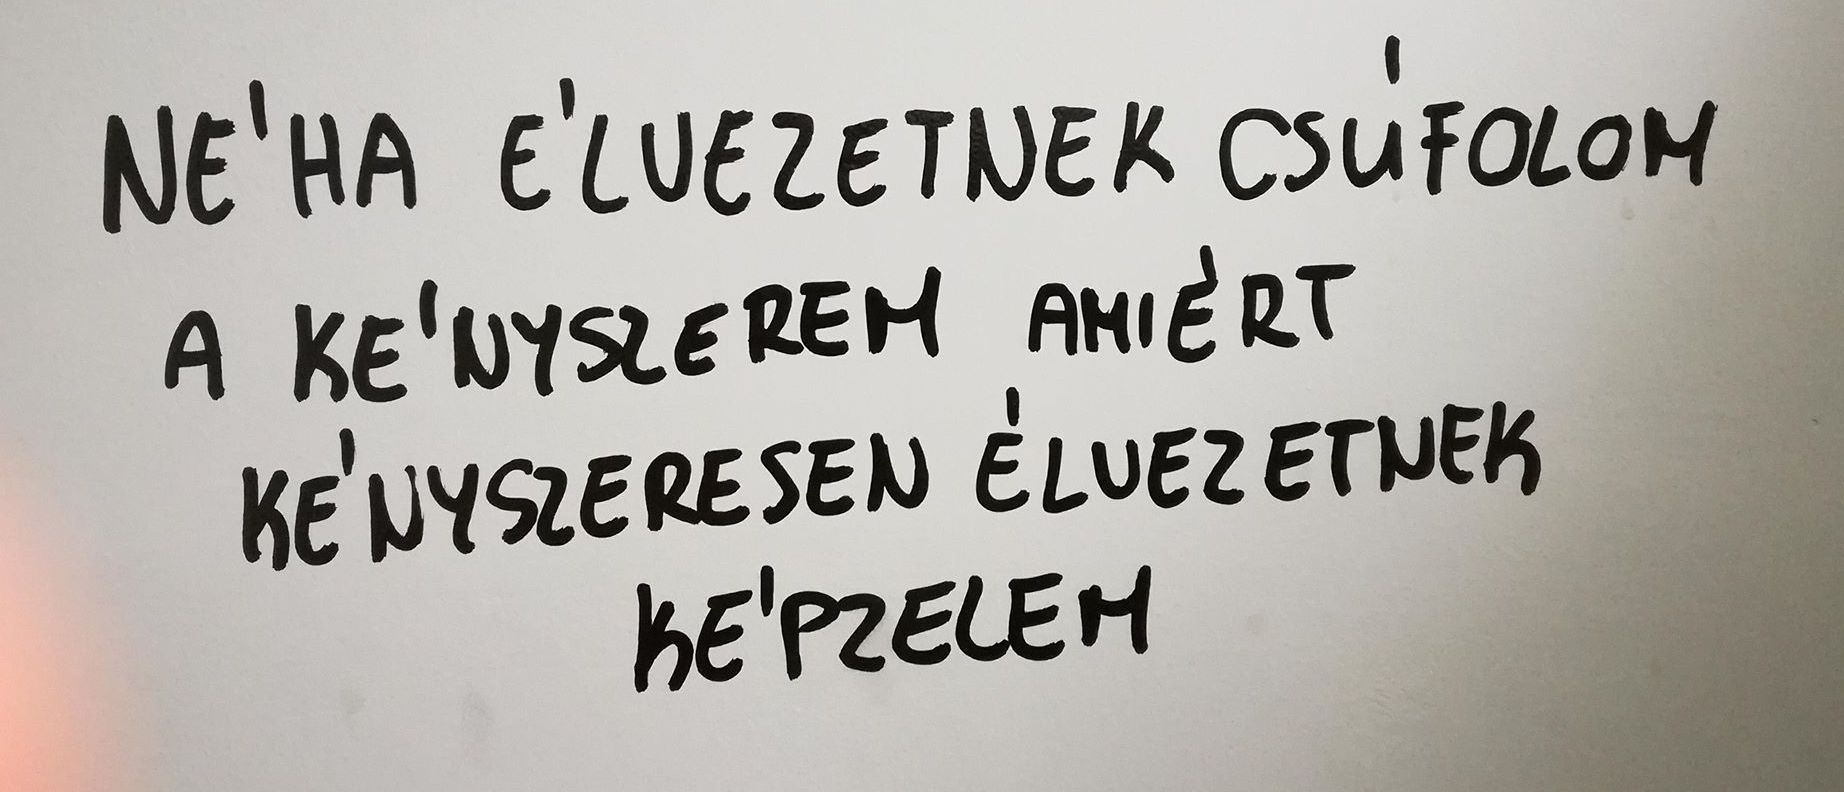 NÉHA ÉLVEZETNEK CSÚFOLOM
A KÉNYSZEREM AMIÉRT
KÉNYSZERESEN ÉLVEZETNEK
KÉPZELEM